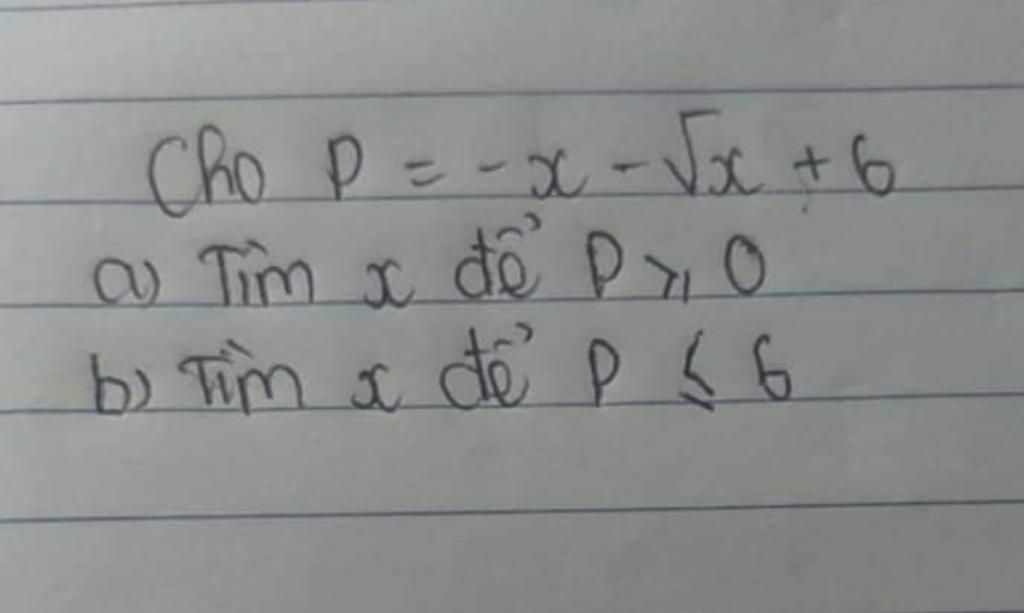 Cho P = -x - √x + 6
a) Tìm x để P ≥ 0
b) Tìm x để P ≤ 6